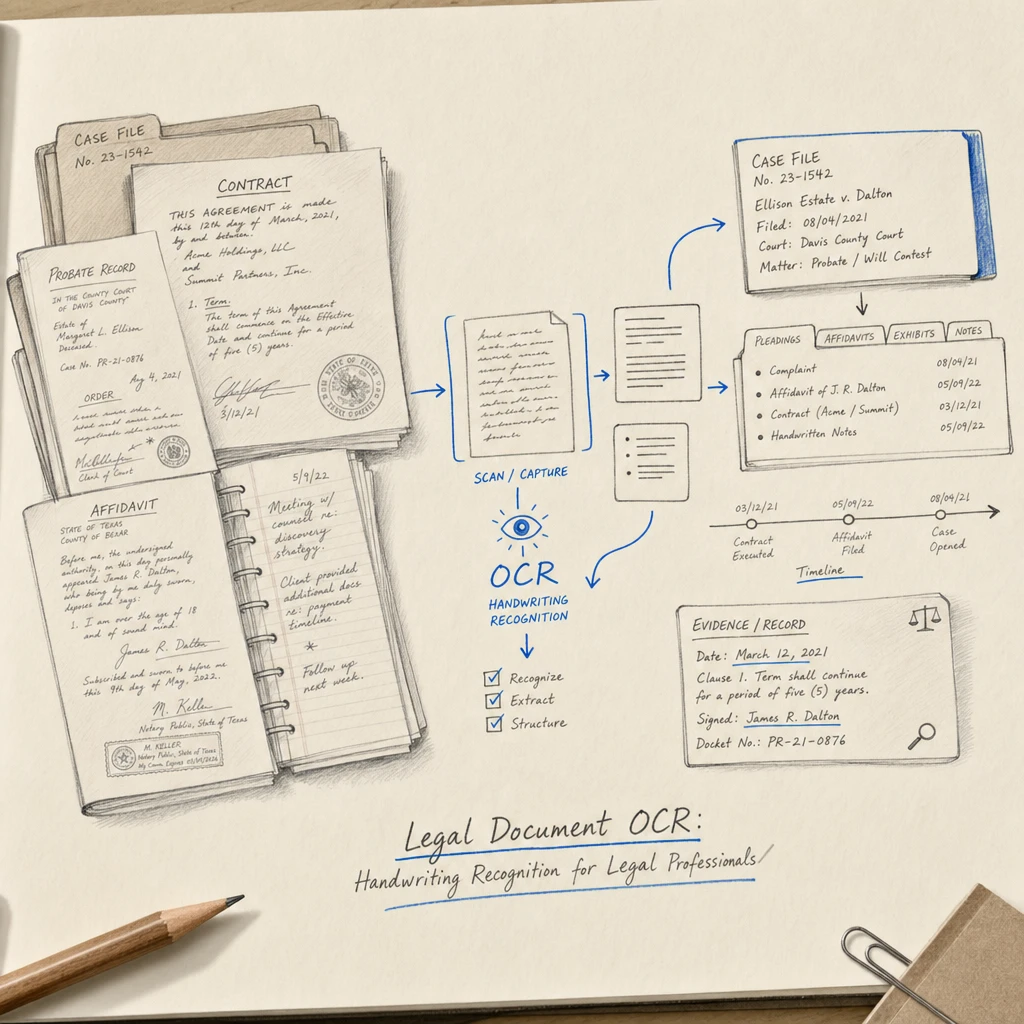 CASE FILE
No. 23-1542
CONTRACT
THIS AGREEMENT is made
this 12th day of March, 2021,
by and between.
Acme Holdings, LLC
and
Summit Partners, Inc.
1. Term.
The term of this Agreement
shall commence on the Effective
Date and continue for a period
of five (5) years.
3/12/21
PROBATE RECORD
IN THE COUNTY COURT
OF DAVIS COUNTY
Estate of
Margaret L. Ellison
Deceased.
Case No. PR-21-0876
Aug 4, 2021
ORDER
Clerk of Court
AFFIDAVIT
STATE OF TEXAS
COUNTY OF BEXAR
Before me, the undersigned
authority, on this day personally
appeared James R. Dalton,
who being by me duly sworn,
deposes and says:
1. I am over the age of 18
and of sound mind.
James R. Dalton
Subscribed and sworn to before me
this 9th day of May, 2022.
M. Keller
Notary Public, State of Texas
M. KELLER
Notary Public, State of Texas
5/9/22
Meeting w/
counsel re:
discovery
strategy.
Client provided
additional docs
re: payment
timeline.
*
Follow up
next week.
SCAN / CAPTURE
OCR
HANDWRITING
RECOGNITION
Recognize
Extract
Structure
CASE FILE
No. 23-1542
Ellison Estate v. Dalton
Filed: 08/04/2021
Court: Davis County Court
Matter: Probate / Will Contest
PLEADINGS AFFIDAVITS EXHIBITS NOTES
• Complaint 08/04/21
• Affidavit of J. R. Dalton 05/09/22
• Contract (Acme / Summit) 03/12/21
• Handwritten Notes 05/09/22
03/12/21 05/09/22 08/04/21
Contract Affidavit Case
Executed Filed Opened
Timeline
EVIDENCE / RECORD
Date: March 12, 2021
Clause 1. Term shall continue
for a period of five (5) years.
Signed: James R. Dalton
Docket No.: PR-21-0876
Legal Document OCR:
Handwriting Recognition for Legal Professionals